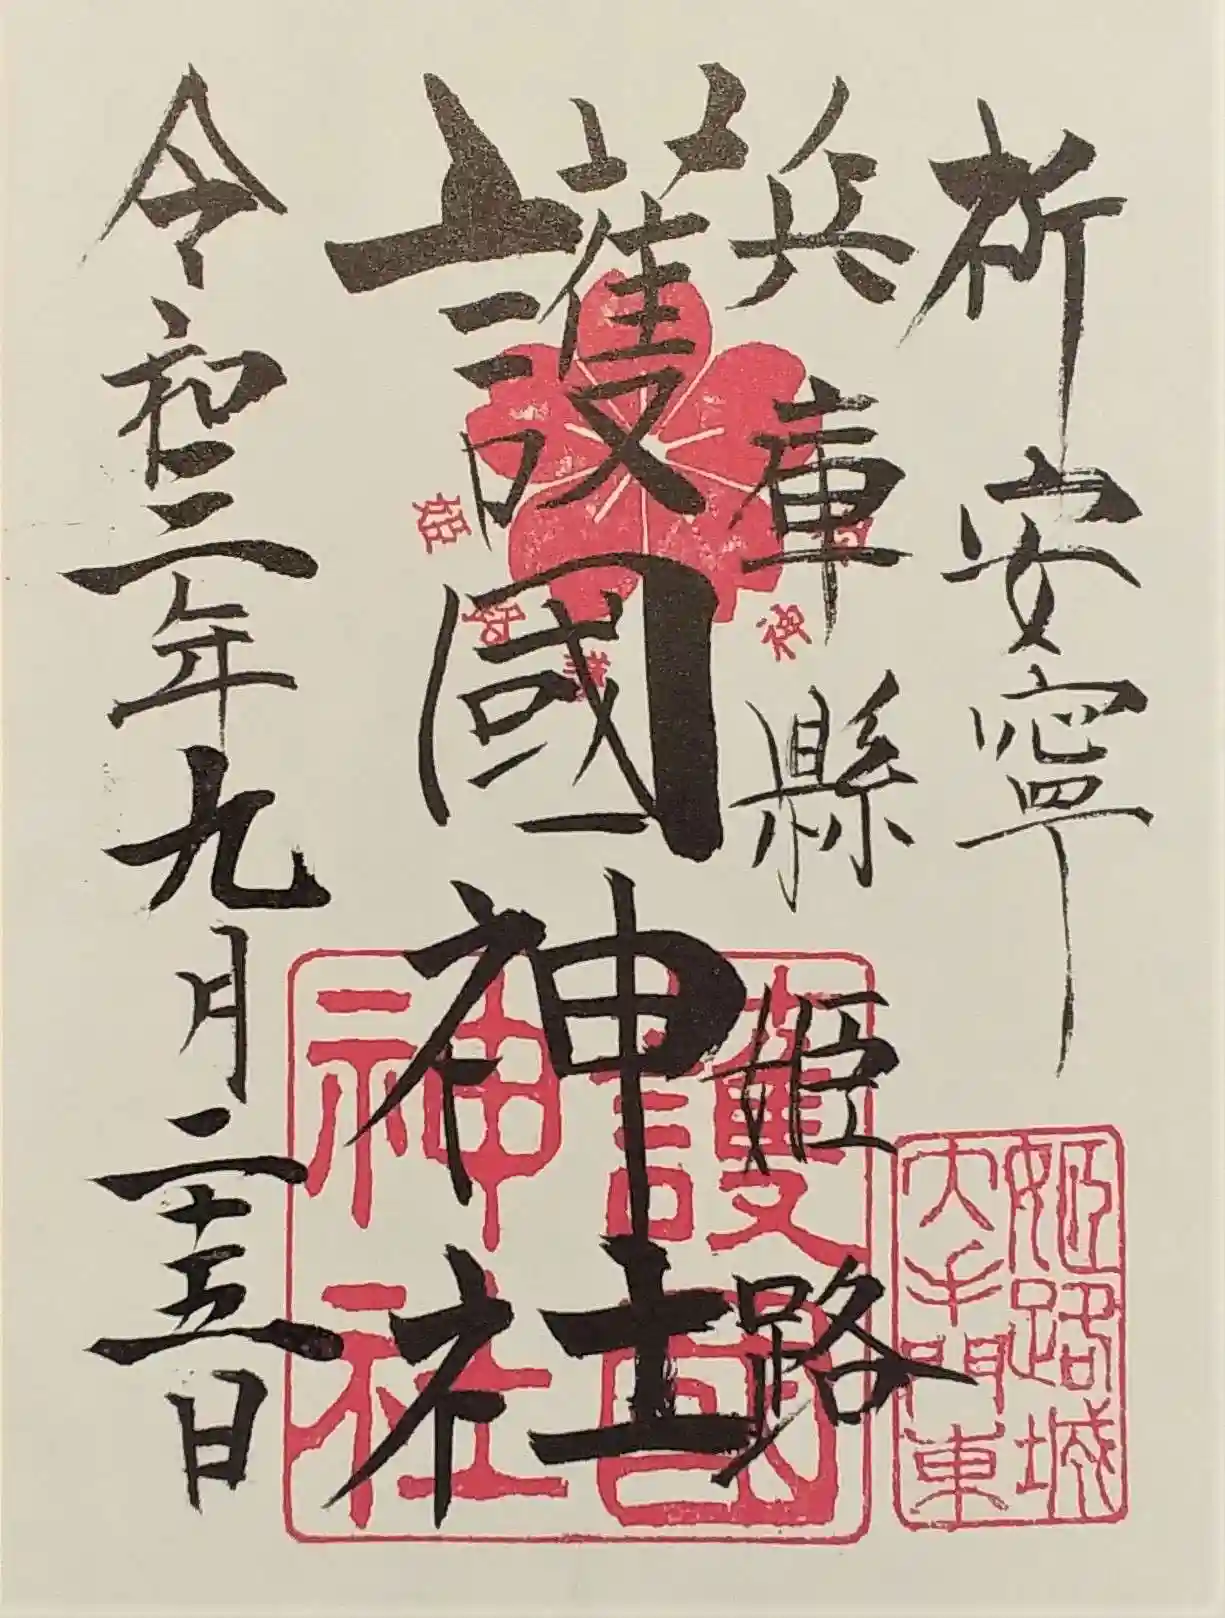 祈安寧
兵庫縣姫路
護國神社
令和三年九月二十五日
姫路護
神
護國
神社
姫路城
大手門東